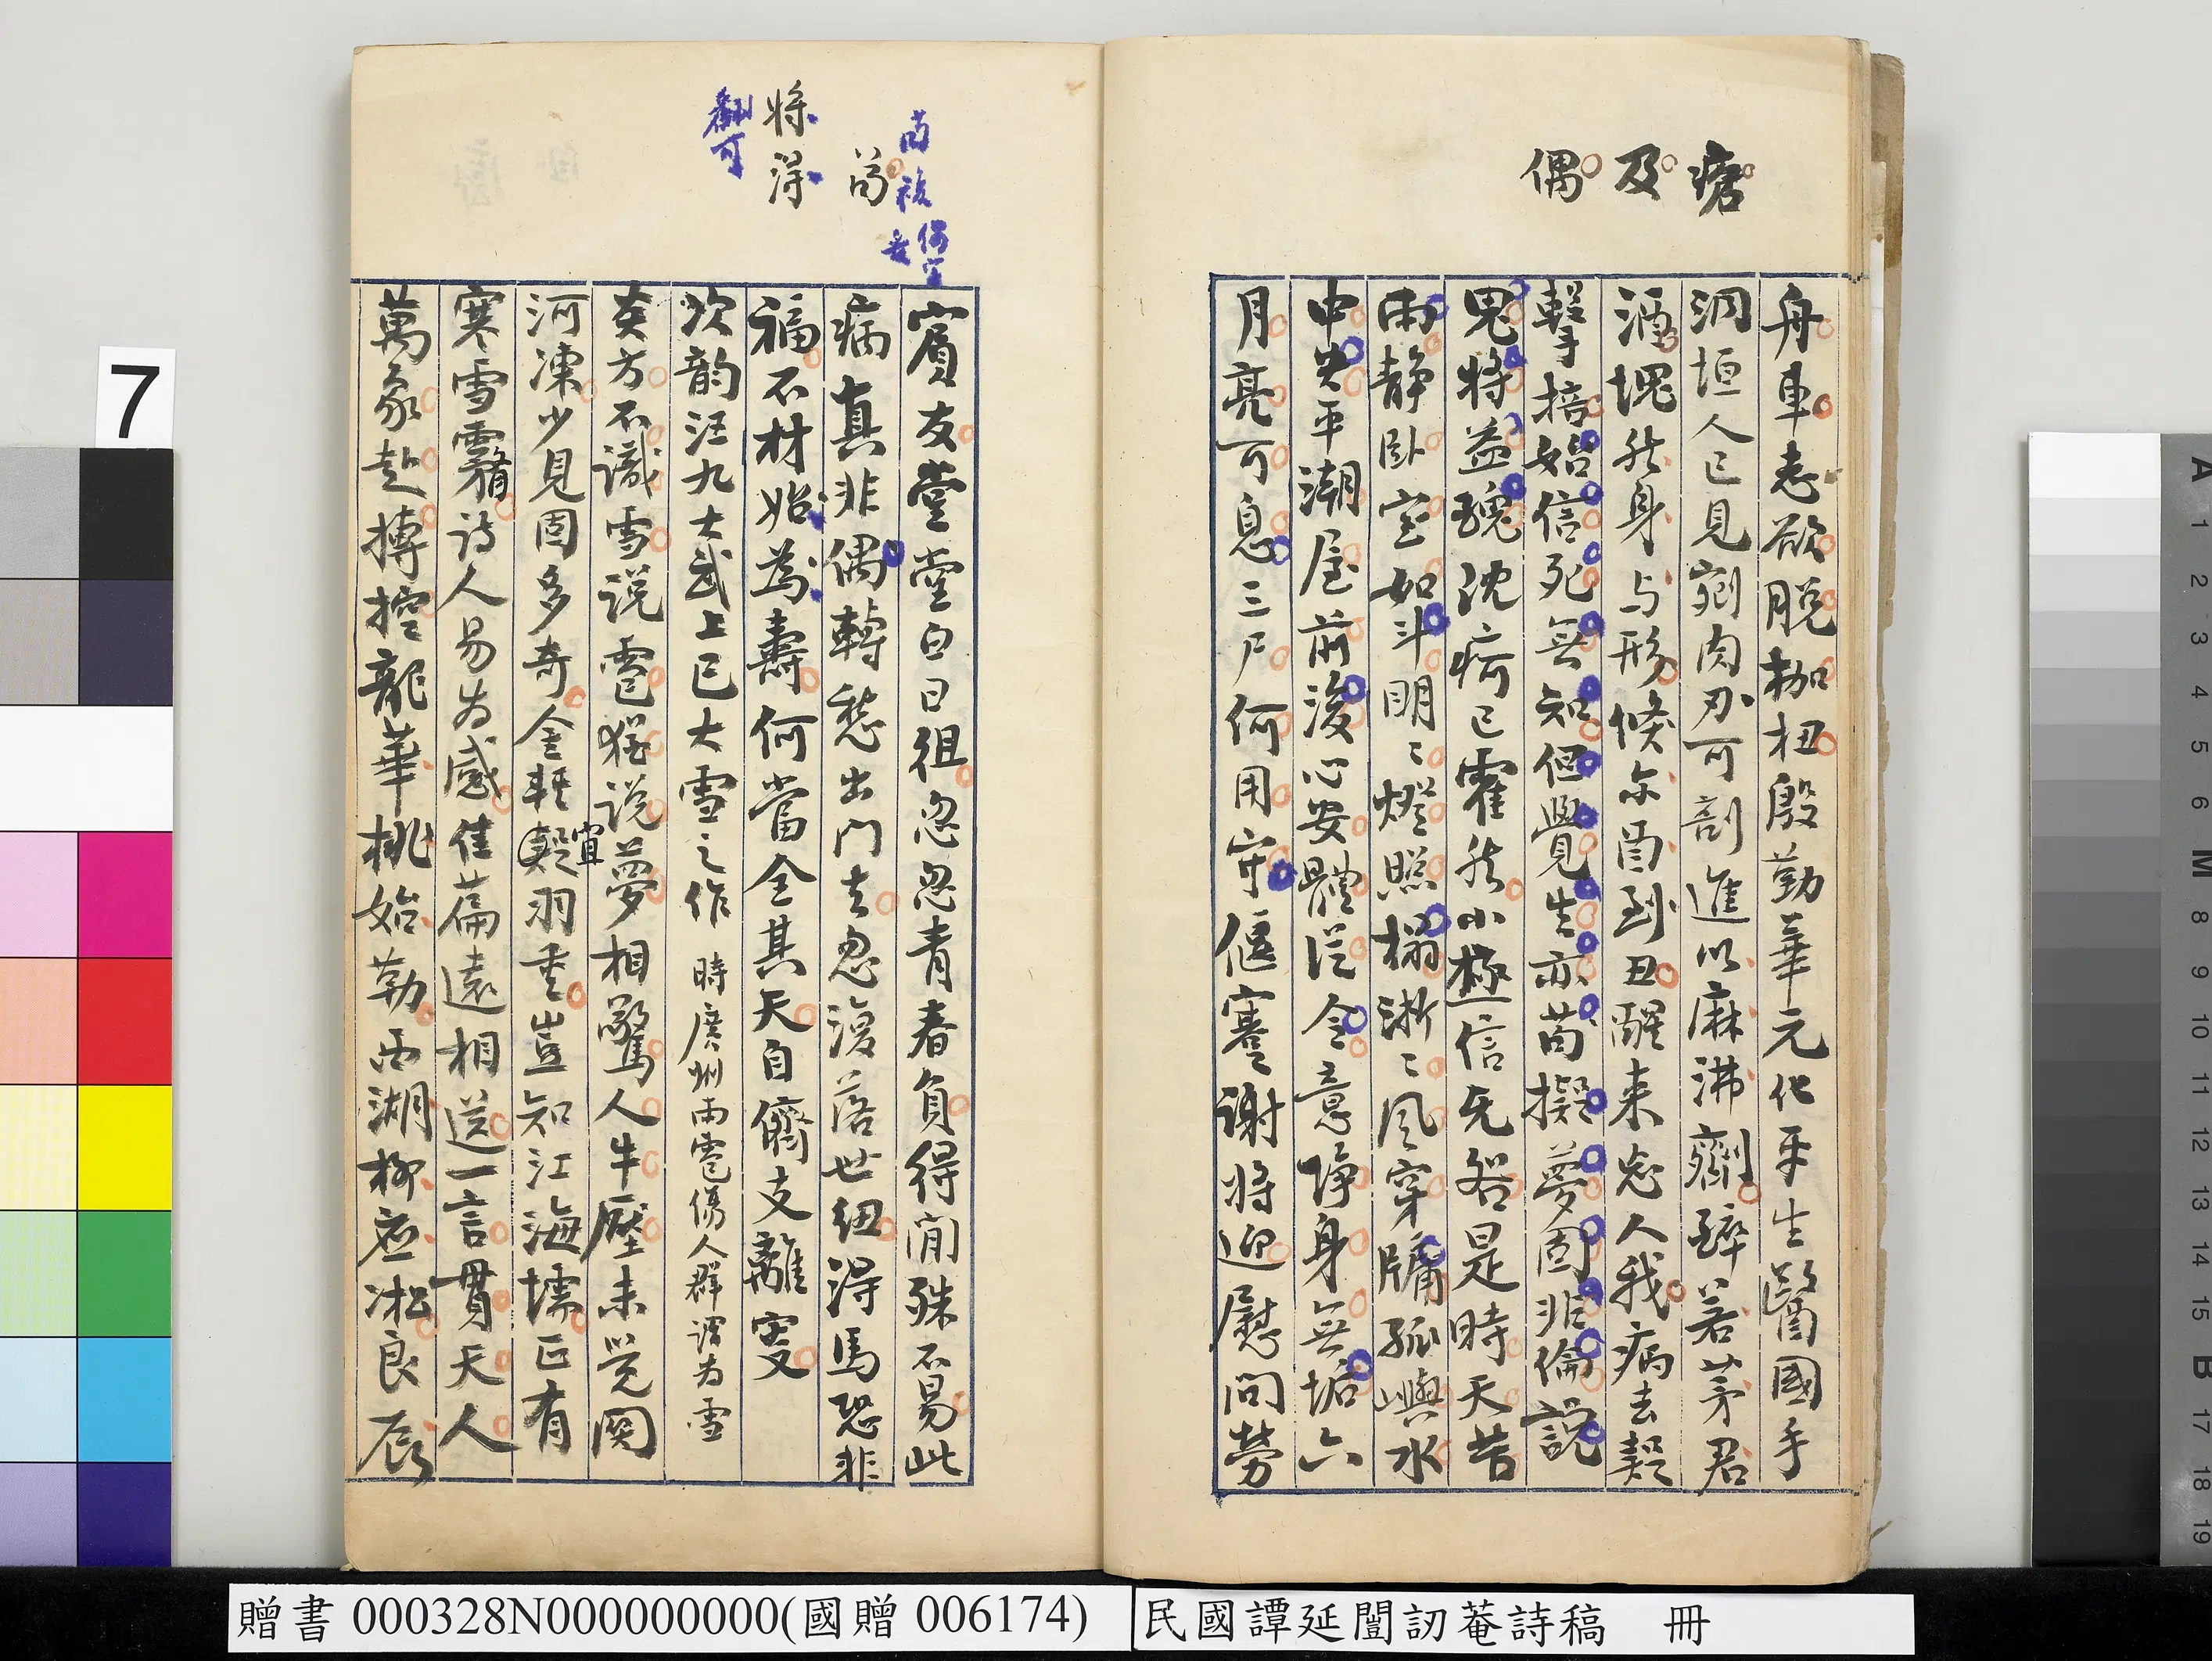 瘡
及
偶
舟車恙欲脫枷杻殷勤華元化平生醫國手
洞垣人已見剜肉刃可割進以麻沸劑醉若茅君
酒塊然身与形倏尔酉到丑醒來忘人我病去疑
擊掊始信死無知但覺生亦苟擬夢固非倫說
鬼將益醜沈疴已霍然小極信无咎是時天苦
雨静卧室如斗明〻燈照榻淅〻风穿牖孤嶼水
中央平潮屋前後心安體從令意淨身無垢六
月亮可息三尸何用守偃蹇謝將迎慰問勞
茍複
似可
将
得
翻可
賓友堂堂白日徂忽忽青春負得閒殊不易此
病真非偶轉愁出門去忽復落世紐得馬恐非
福不材始為壽何當全其天自儕支離叟
次韵汪九大武上巳大雪之作 時廣州雨雹傷人群謂为雪
炎方不識雪説雹猶説夢相驚人牛壓未覺関
河凍少見固多奇金輕疑羽重豈知江海壖正有
宜
寒雪霿詩人易为感佳篇遠相送一言貫天人
萬象赴摶控龍華桃始勒西湖柳應凇良辰
7
贈書 000328N000000000(國贈 006174)
民國譚延闓訒菴詩稿 冊
A 1 2 3 4 5 6 M 8 9 10 11 12 13 14 15 B 17 18 19